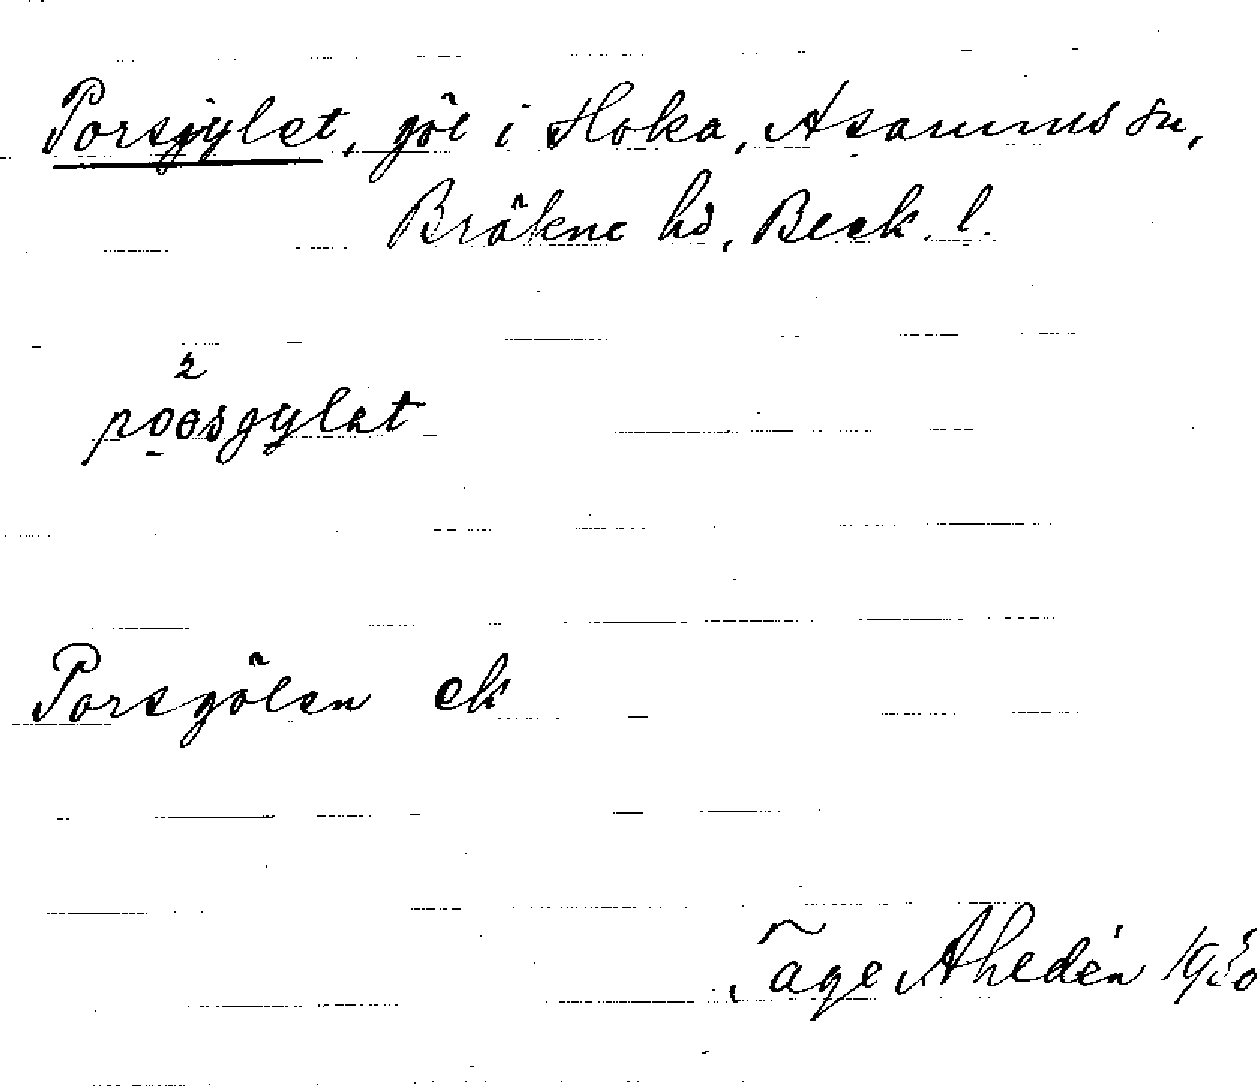 Porsgylet, göl i Hoka, Asarums sn,
Bräkne hd, Blek. l.
2
poɐsgylat
Porsgölen ek
Tage Ahedén 1930